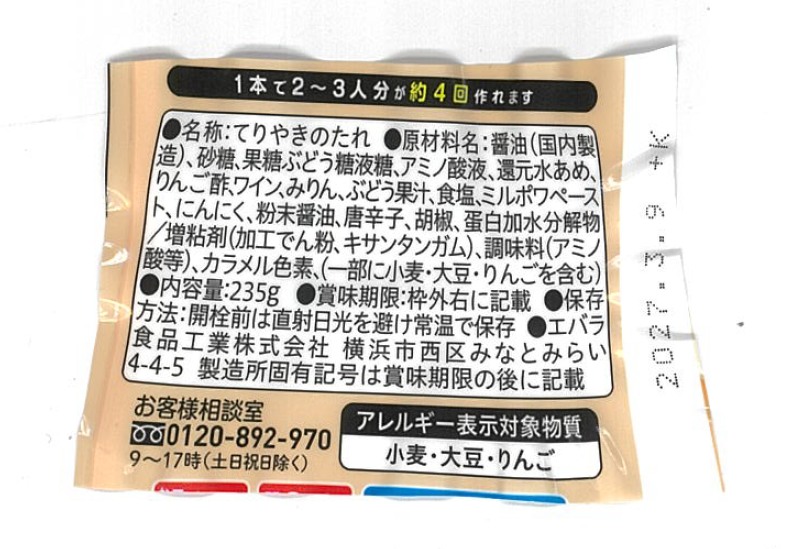 1本で2～3人分が約4回作れます
●名称:てりやきのたれ ●原材料名:醤油(国内製
造)、砂糖、果糖ぶどう糖液糖、アミノ酸液、還元水あめ、
りんご酢、ワイン、みりん、ぶどう果汁、食塩、ミルポワペース
ト、にんにく、粉末醤油、唐辛子、胡椒、蛋白加水分解物
/増粘剤(加工でん粉、キサンタンガム)、調味料(アミノ
酸等)、カラメル色素、(一部に小麦・大豆・りんごを含む)
●内容量:235g ●賞味期限:枠外右に記載 ●保存
方法:開栓前は直射日光を避け常温で保存 ●エバラ
食品工業株式会社 横浜市西区みなとみらい
4-4-5 製造所固有記号は賞味期限の後に記載
お客様相談室
0120-892-970
9～17時(土日祝日除く)
アレルギー表示対象物質
小麦・大豆・りんご
2027.3.9 +K